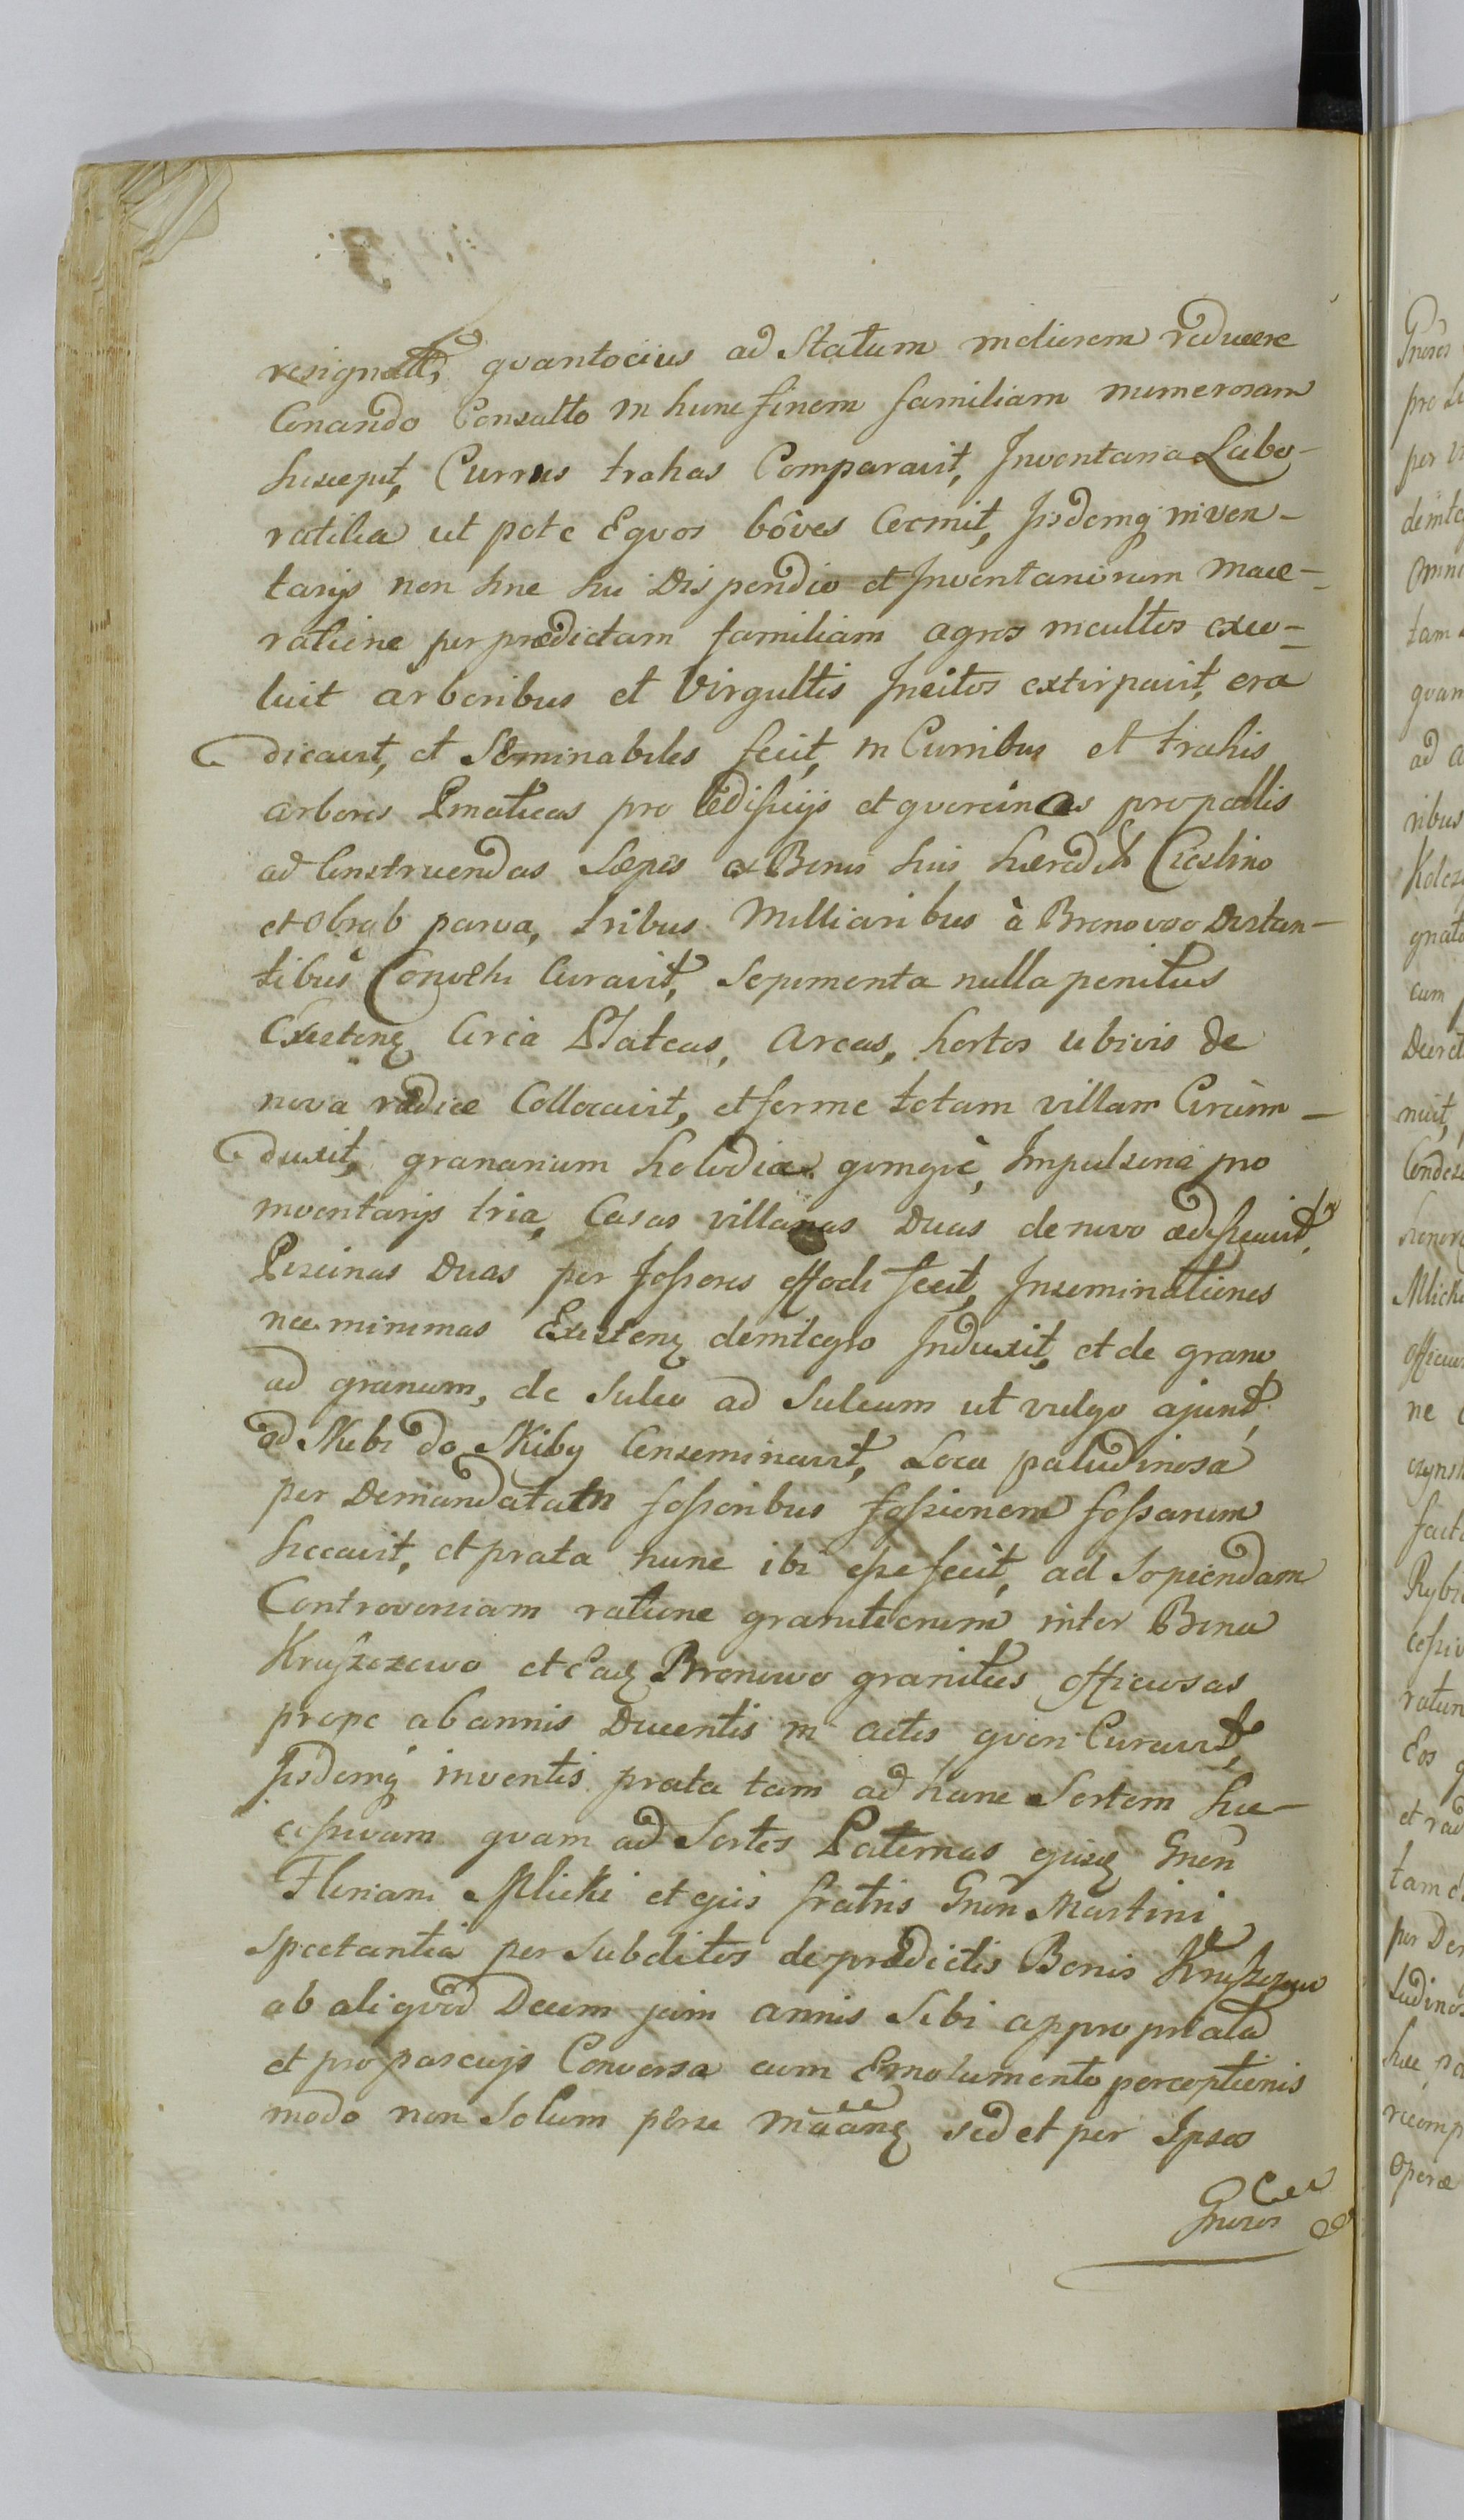 quantocius ad Statum meliorem reducere
Conando Consulto in hunc finem familiam numerosam
suscepit, Currus trahas Comparavit, Inventaria Labo-
ratilia ut pote Equos bôves Coemit, Jisdemq inven-
tarijs non sine sui Dispendio et Inventariorum mace-
ratione per prædictam familiam agros incultos exco-
luit arboribus et Virgultis Insitos extirpavit, era
dicavit, et Seminabiles fecit, in Curribus et trahis
arbores pro ædificijs et quercinas pro pallis
ad Construendas Sæpes ex Bonis suis hæredit Cieslino
et Obrąb parva, tribus Milliaribus à Bronowo Distan-
tibus Convehi Curavit, Sepimenta nulla penitus
Existenq Circa Plateas, Areas, hortos ubivis de
nova radice Collocavit, et ferme totam villam Circùm-
duxit, granarium pro
inventarijs tria, Casas villanas Duas de novo ædificavit,
Piscinas Duas per fossores effodi fecit, Inseminationes
nec minimas Existenq deintegro Induxit, et de grano
ad granum, de Sulco ad Sulcum ut vulgo ajunt,
od Skibi do Skiby Conseminavit, Loca paludinosa
per Demandatam fossoribus fossionem fossarum
siccavit, et prata nunc ibi esse fecit, ad Sopiendam
Controversiam ratione granitierum inter Bona
Kruszczewo et Eadq Bronowo granities officiosas
prope ab annis Ducentis in actis qværi Curavit,
Jisdemq inventis prata tam ad hanc Sortem suc-
cessivam quam ad Sortes Paternas ejusq Gnën
Floriani Mlicki et ejus fratris Gnën Martini
Spectantia per Subditos de prædictis Bonis Kruszczewo
ab aliquod Decem jam annis Sibi appropriata
et pro pascujs Conversa cum Emolumento perceptionis
modo non Solum per se sed et per Ipsos
Gnosos